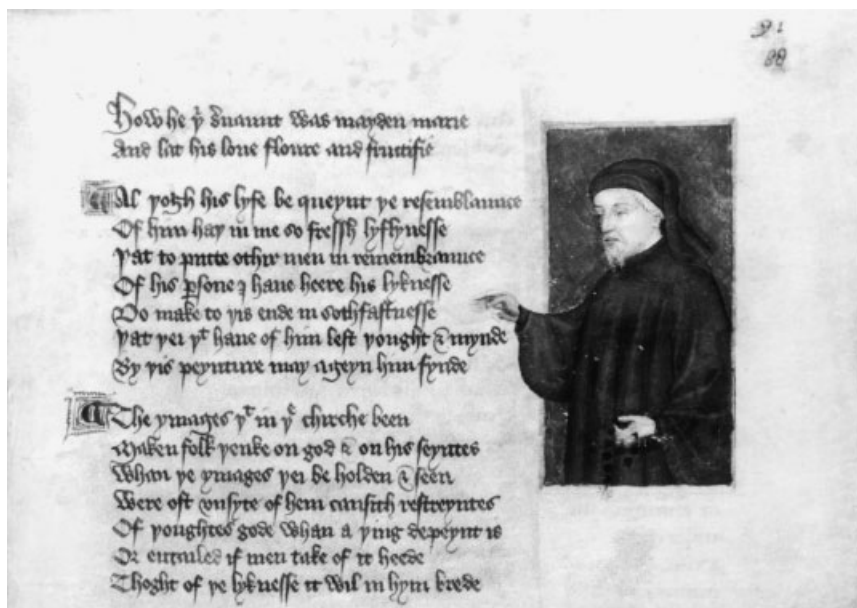 91
88
How he yͬ s̉uaunt was mayden marie
And lat his loue floure and fructifie
Al yogh his lyfe be queynt ye resemblaunce
Of him hay in me so fressh lyflynesse
Yat to putte othir men in remembraunce
Of his ꝑsone ⁊ haue heere his lyknesse
Do make to yis ende in sothfastnesse
Yat yei yͭ haue of him left yought & mynde
By yis peynture may ageyn him fynde
The ymages yͭ in yͤ chirche been
Maken folk yenke on god & on his seyntes
Whan ye ymages yei be holden & seen
Were oft vnsyte of hem causith restreyntes
Of youghtes gode whan a ying depeynt is
Or entailed if men take of it heede
Thoght of ye lyknesse it wil in hym brede